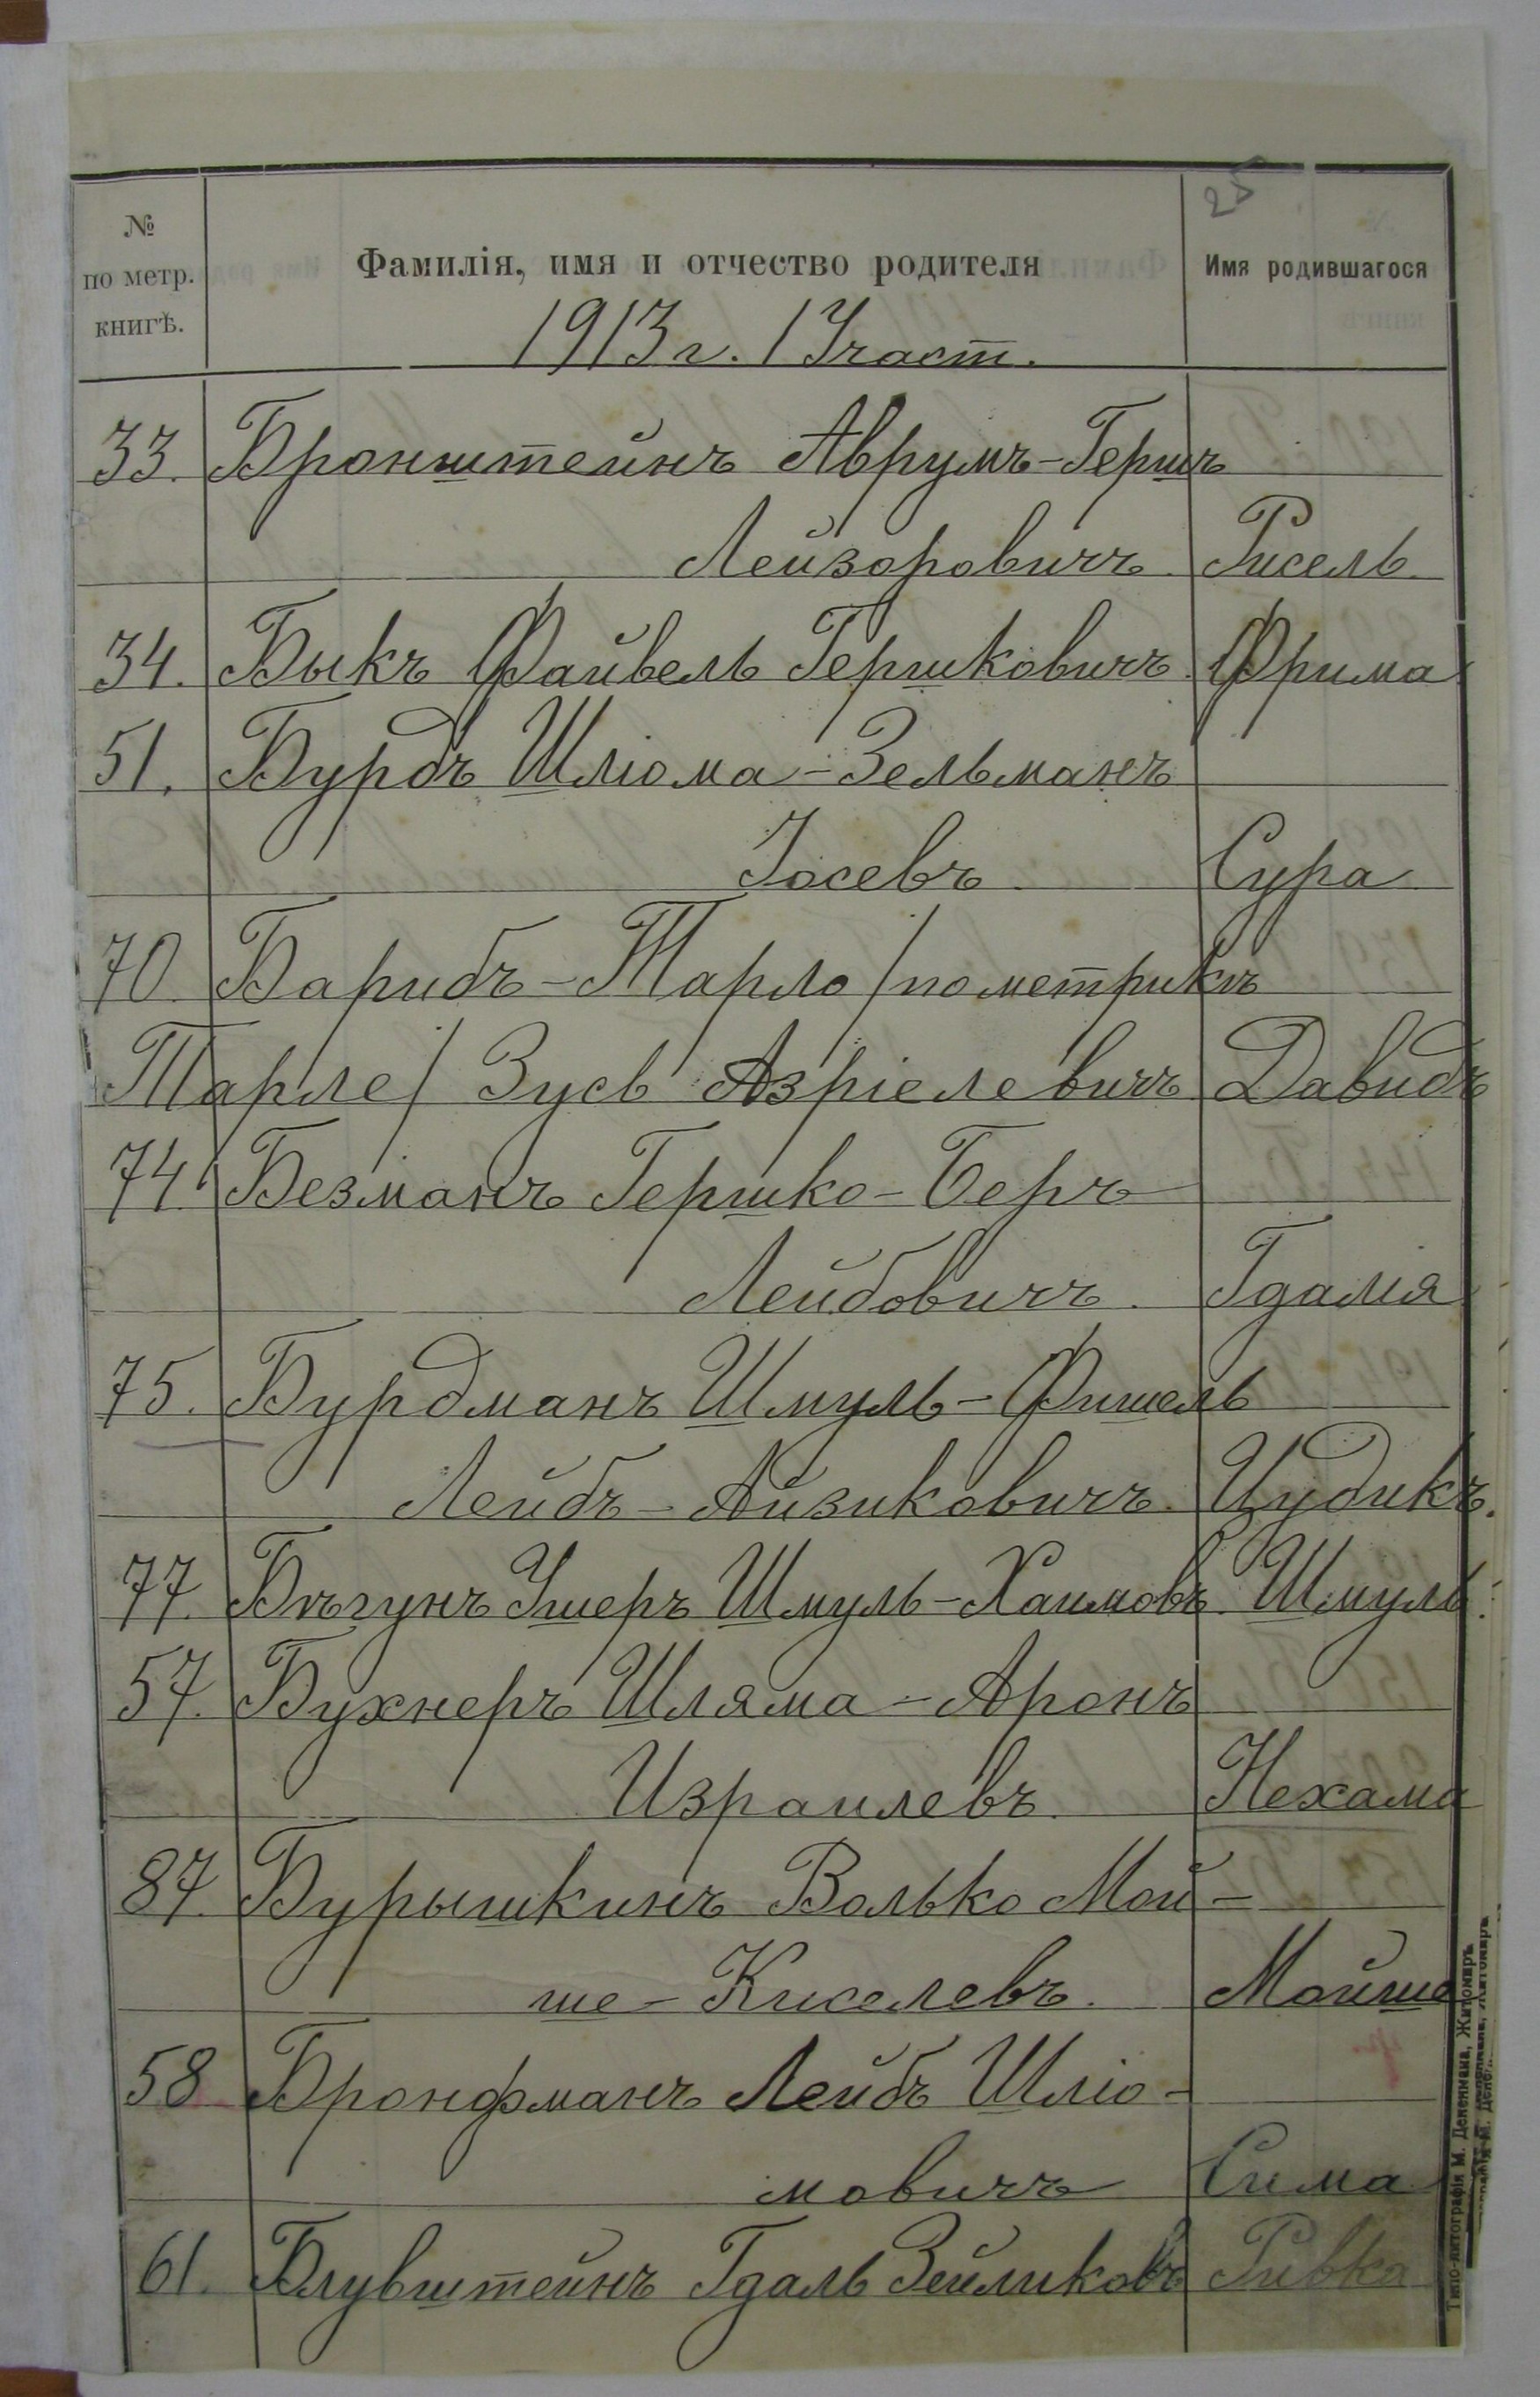 25
№ по метр. книгѣ.
Фамилія, имя и отчество родителя
Имя родившагося
1913 г. 1 Участ.
33. Бронштейнъ Аврумъ-Гершъ
Лейзоровичъ. Рисель.
34. Быкъ Файвель Гершковичъ. Фрима
51. Бурдъ Шліома-Зельманъ
Іосевъ. Сура
70 Барибъ-Тарло /по метрикѣ
Тарле/ Зусь Азріелевичъ Давидъ
74. Безманъ Гершко-Беръ
Лейбовичъ. Гдалія
75. Бурдманъ Шмуль-Фишель
Лейбъ-Айзиковичъ. Цудикъ.
77. Бѣгунъ Ушеръ Шмуль-Хаимовъ. Шмуль.
57. Бухнеръ Шляма-Аронъ
Израилевъ. Нехама
87. Бурышкинъ Волько Мой-
ше-Киселевъ. Мойше
58 Бронфманъ Лейбъ Шліо-
мовичъ Сима
61. Блувштейнъ Гдаль Зейликовъ Ривка
Типо-литографія М. Дененмана, Житоміръ